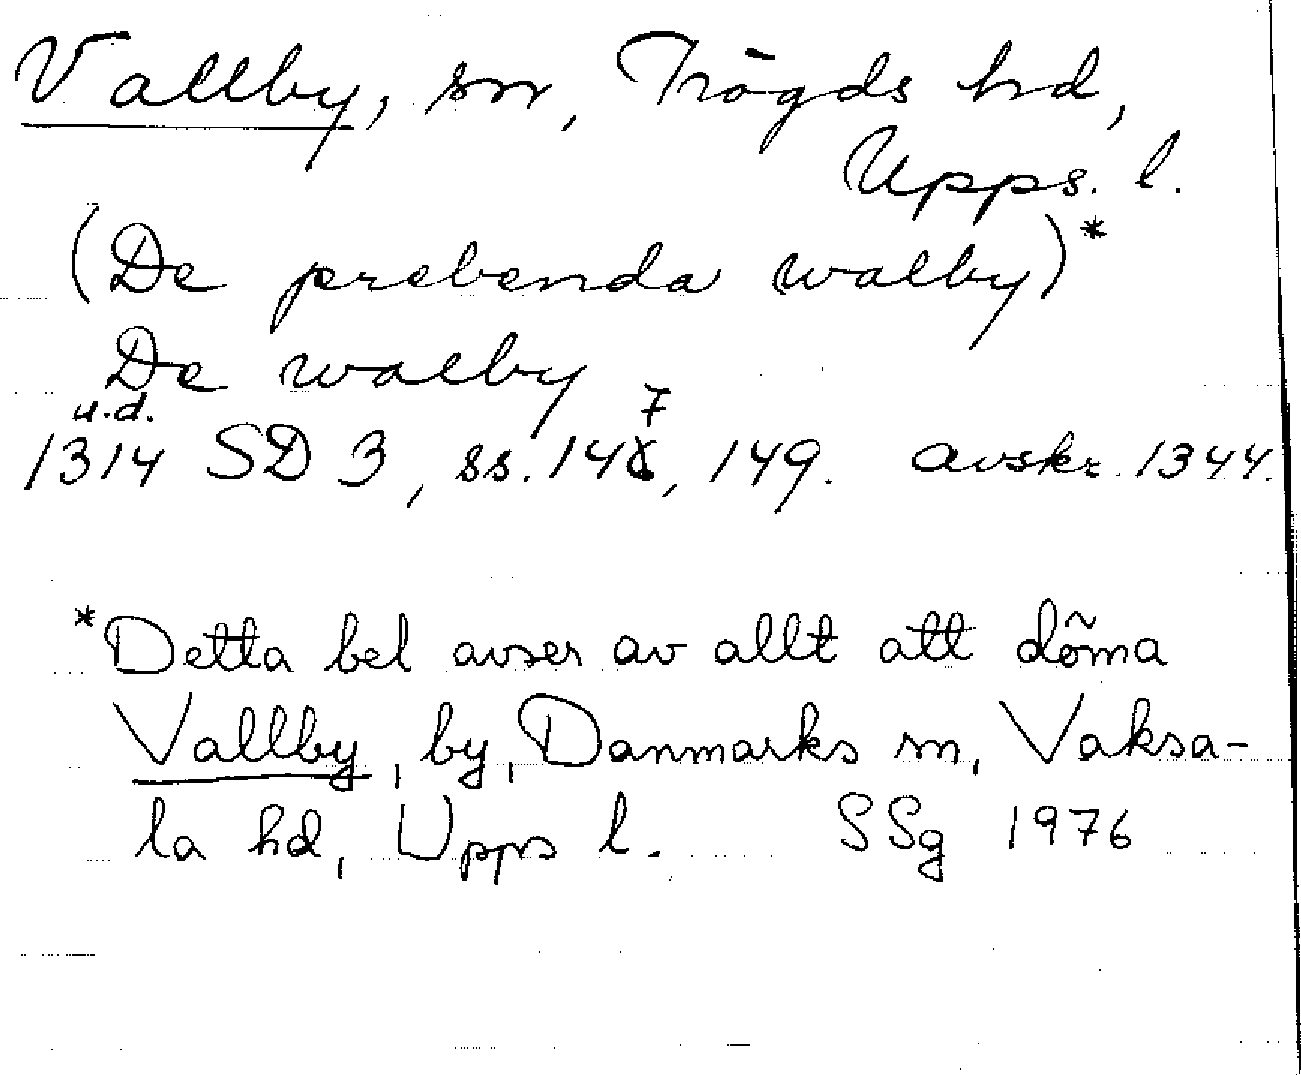 Vallby, sn, Trögds hd,
Upps. l.
(De prebenda walby)*
De walby
u.d. 7
1314 SD 3, ss. 148, 149. avskr. 1344.
*Detta bel avser av allt att döma
Vallby, by, Danmarks sn, Vaksa-
la hd, Upps l. SSg 1976